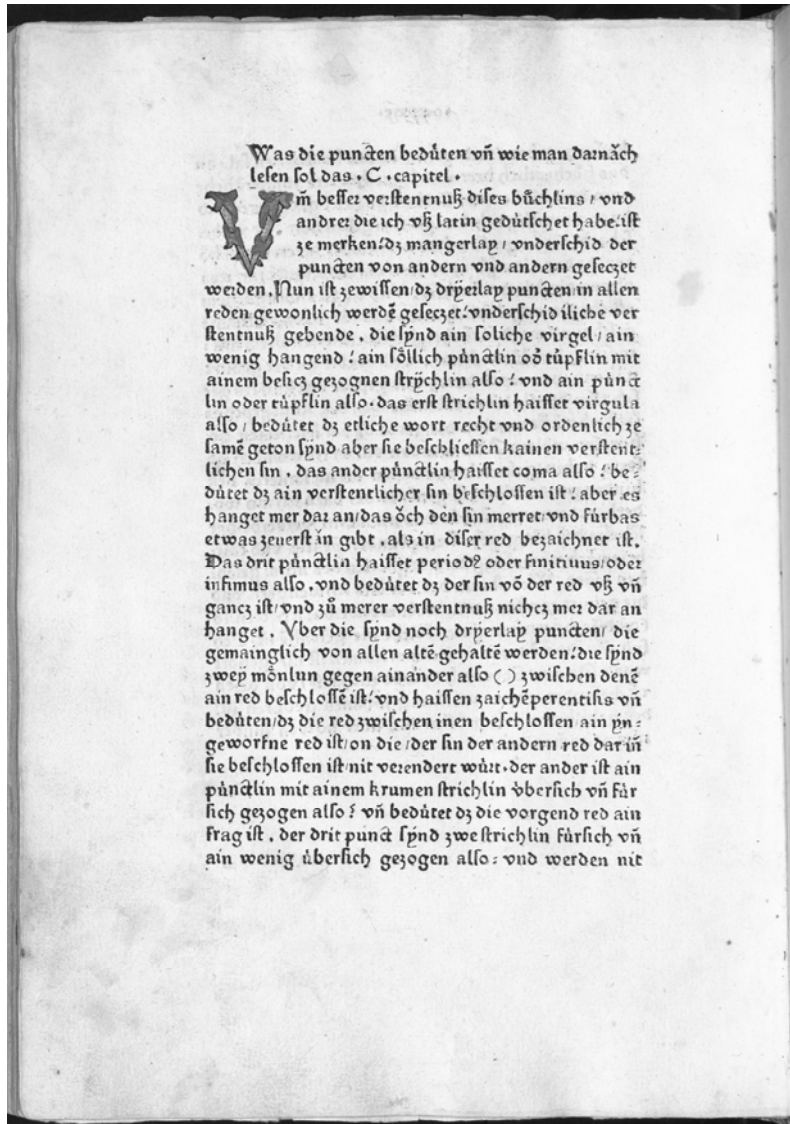 Was die puncten bedüten vñ wie man darnǎch
lesen sol das · C · capitel ·
Vm̃ besser verstentnuß dises bůchlins / vnd
andrer die ich vß latin gedütschet habe: ist
ze merken: dz mangerlay / vnderschid der
puncten von andern vnd andern geseczet
werden. Nun ist zewissen / dz dryerlay puncten in allen
reden gewonlich werdẽ geseczet: vnderschidiliche ver
stentnuß gebende. die sÿnd ain soliche virgel / ain
wenig hangend : ain söllich pünctlin oď tüpflin mit
ainem besicz gezognen strÿchlin also : vnd ain pünct
lin oder tüpflin also. das erst strichlin haisset virgula
also / bedütet dz etliche wort recht vnd ordenlich ze
samẽ geton sÿnd aber sie beschliessen kainen verstent-
lichen sin. das ander pünctlin haisset coma also : be-
dütet dz ain verstentlicher sin beschlossen ist : aber es
hanget mer dar an / das öch den sin merret / vnd fürbas
etwas zeuerst in gibt. als in diser red bezaichnet ist.
Das drit pünctlin haisset periodꝰ oder finitiuus / oder
infimus also. vnd bedütet dz der sin võ der red vß vñ
gancz ist / vnd zů merer verstentnuß nichcz mer dar an
hanget. Vber die sÿnd noch drÿerlaÿ puncten / die
gemainglich von allen altẽ gehaltẽ werden: die sÿnd
zweÿ mönlun gegen ainander also ( ) zwischen denẽ
ain red beschlossẽ ist: vnd haissen zaichẽ perentisis vñ
bedüten / dz die red zwischen inen beschlossen ain ÿn-
geworfne red ist / on die / der sin der andern red dar iñ
sie beschlossen ist / nit verendert würt. der ander ist ain
pünctlin mit ainem krumen strichlin v̈bersich vñ für
sich gezogen also ? vñ bedütet dz die vorgend red ain
frag ist. der drit punct sÿnd zwe strichlin fürsich vñ
ain wenig übersich gezogen also ⸗ vnd werden nit